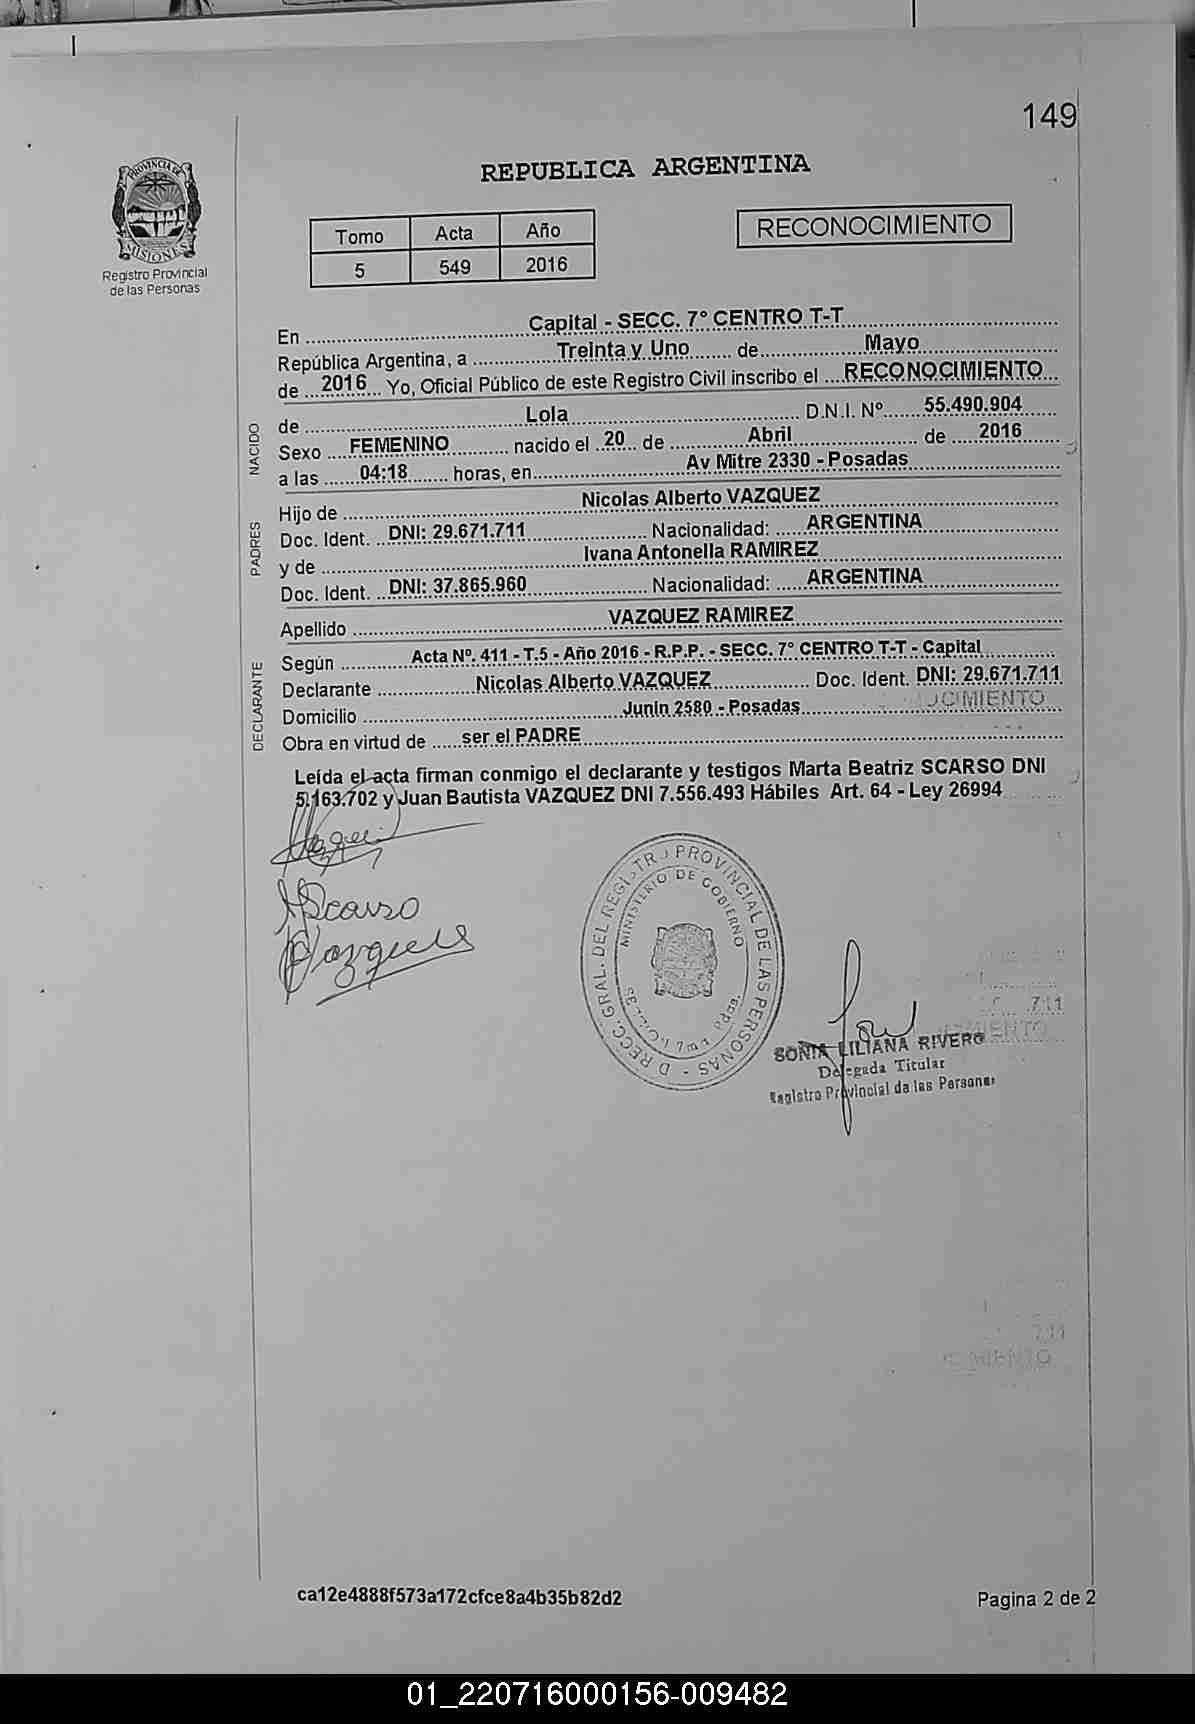 149
PROVINCIA DE
MISIONES
Registro Provincial
de las Personas
REPUBLICA ARGENTINA
Tomo Acta Año
5 549 2016
RECONOCIMIENTO
En ...... Capital - SECC. 7° CENTRO T-T ......
República Argentina, a ...... Treinta y Uno ...... de ...... Mayo ......
de ... 2016 ... Yo, Oficial Público de este Registro Civil inscribo el ... RECONOCIMIENTO ...
NACIDO
de ...... Lola ...... D.N.I. Nº ...... 55.490.904 ......
Sexo ... FEMENINO ...... nacido el .. 20 .. de ...... Abril ...... de .... 2016 ......
a las ...... 04:18 ...... horas, en ...... Av Mitre 2330 - Posadas ......
PADRES
Hijo de ...... Nicolas Alberto VAZQUEZ ......
Doc. Ident. .. DNI: 29.671.711 ...... Nacionalidad: ..... ARGENTINA ......
y de ...... Ivana Antonella RAMIREZ ......
Doc. Ident. .. DNI: 37.865.960 ...... Nacionalidad: ..... ARGENTINA ......
Apellido ...... VAZQUEZ RAMIREZ ......
DECLARANTE
Según ...... Acta Nº. 411 - T.5 - Año 2016 - R.P.P. - SECC. 7° CENTRO T-T - Capital ......
Declarante ...... Nicolas Alberto VAZQUEZ ...... Doc. Ident. DNI: 29.671.711
Domicilio ...... Junin 2580 - Posadas ......
Obra en virtud de ..... ser el PADRE ......
Leída el acta firman conmigo el declarante y testigos Marta Beatriz SCARSO DNI
5.163.702 y Juan Bautista VAZQUEZ DNI 7.556.493 Hábiles Art. 64 - Ley 26994
MScarso
Vazquez
DIRECC. GRAL. DEL REGISTRO PROVINCIAL DE LAS PERSONAS
MINISTERIO DE GOBIERNO
SONIA LILIANA RIVERO
Delegada Titular
Registro Provincial de las Personas
711
ca12e4888f573a172cfce8a4b35b82d2
Pagina 2 de 2
01_220716000156-009482